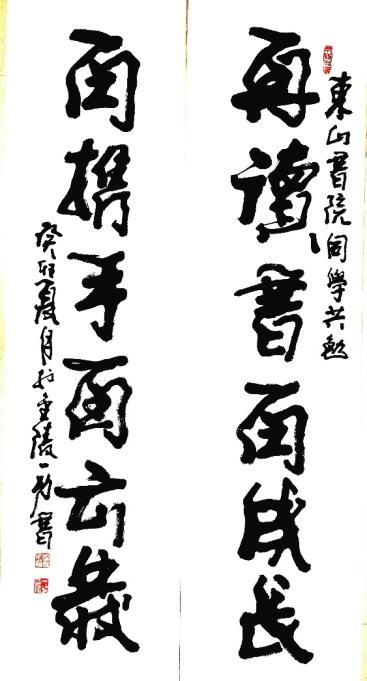 東山書院同學共勉
再讀書再成長
再攜手再出發
癸卯夏月於金陵一書